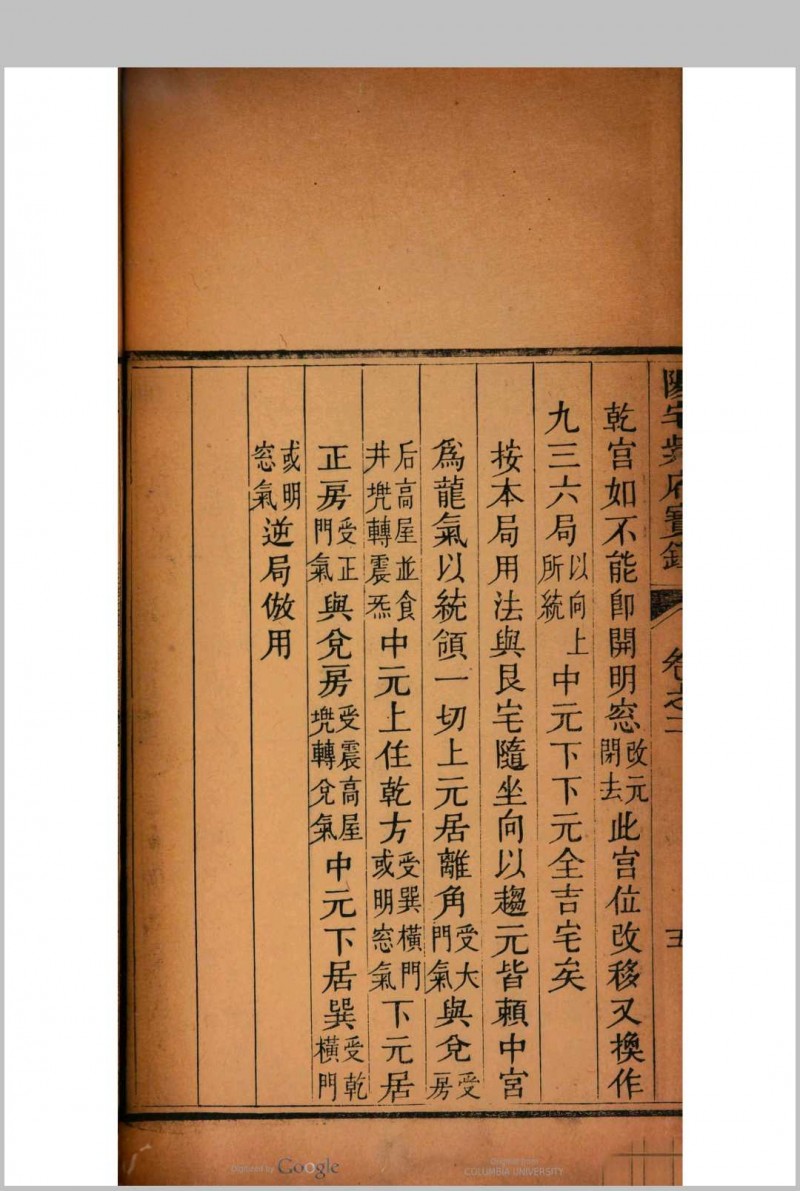 陽宅紫府寶 卷之二 五
乾宫如不能即開明窓改元閉去此宫位改移又換作
九三六局以向上所統中元下下元全吉宅矣
按本局用法與艮宅隨坐向以趨元皆賴中宫
爲龍氣以統領一切上元居離角受大門氣與兌受房
后高屋並食井轉震炁中元上住乾方受巽橫門或明窓氣下元居
正房受正門氣與兌房受震高屋轉兌氣中元下居巽受乾橫門
或明窓氣逆局倣用
Digitized by Google
Original from
COLUMBIA UNIVERSITY